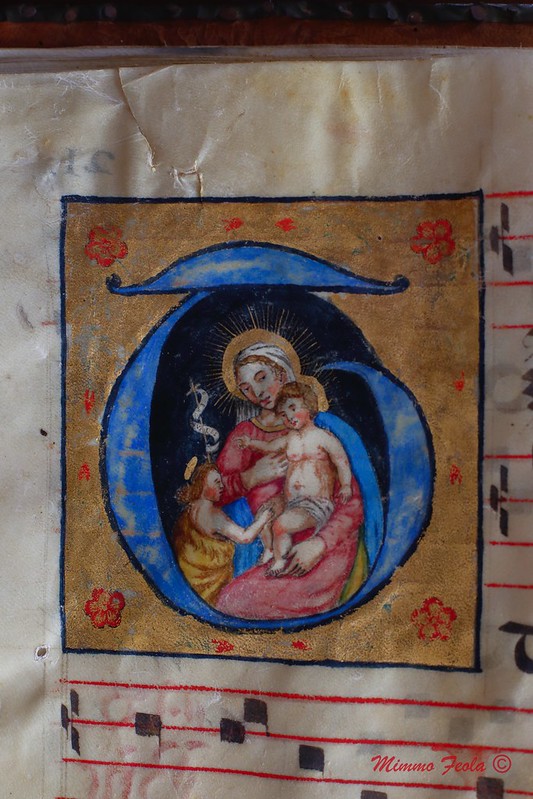 T
Mimmo Feola ©